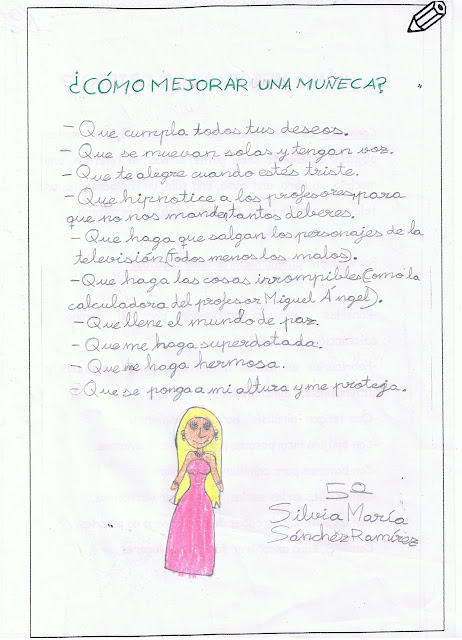 ¿CÓMO MEJORAR UNA MUÑECA?
- Que cumpla todos tus deseos.
- Que se muevan solas y tengan voz.
- Que te alegre cuando estés triste.
- Que hipnotice a los profesores, para
que no nos manden tantos deberes.
- Que haga que salgan los personajes de la
televisión (Todos menos los malos).
- Que haga las cosas irrompibles (Como la
calculadora del profesor Miguel Ángel).
- Que llene el mundo de paz.
- Que me haga superdotada.
- Que me haga hermosa.
- Que se ponga a mi altura y me proteja.
5º
Silvia María
Sánchez Ramírez